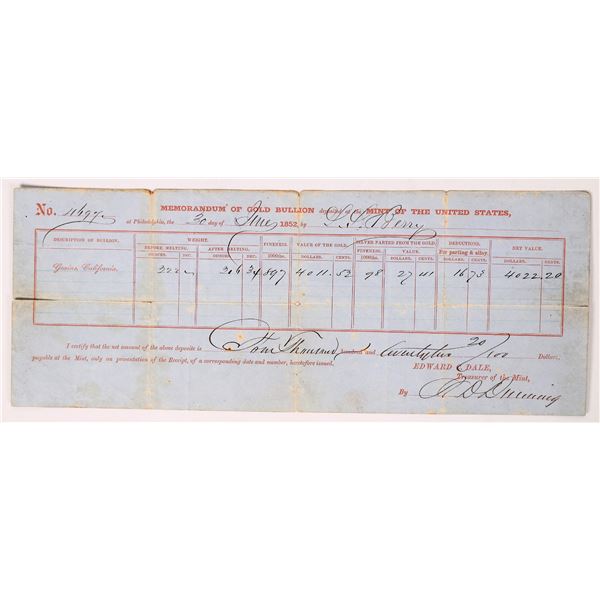 No. 4697 MEMORANDUM OF GOLD BULLION deposited at the MINT OF THE UNITED STATES,
at Philadelphia, the 30 day of June 1852, by Perry
DESCRIPTION OF BULLION. WEIGHT. FINENESS. VALUE OF THE GOLD. SILVER PARTED FROM THE GOLD. DEDUCTIONS. NET VALUE.
BEFORE MELTING. AFTER MELTING. FINENESS. VALUE. For parting & alloy.
OUNCES. DEC. OUNCES. DEC. 1000ths. DOLLARS. CENTS. 1000ths. DOLLARS. CENTS. DOLLARS. CENTS. DOLLARS. CENTS.
Grains, California. 322 316 34 897 4011 53 98 27 41 16 73 4022 20
I certify that the net amount of the above deposits is Four Thousand hundred and twenty two 20/100 Dollars,
payable at the Mint, only on presentation of the Receipt, of a corresponding date and number, heretofore issued.
EDWARD C. DALE,
Treasurer of the Mint,
By